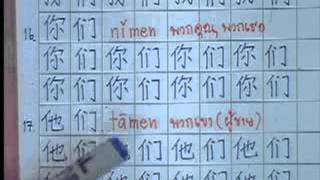 16. 你们 nǐmen พวกคุณ, พวกเธอ
你们你们你们你们
你们你们你们你们
17. 他们 tāmen พวกเขา (ผู้ชาย)
他们他们他们